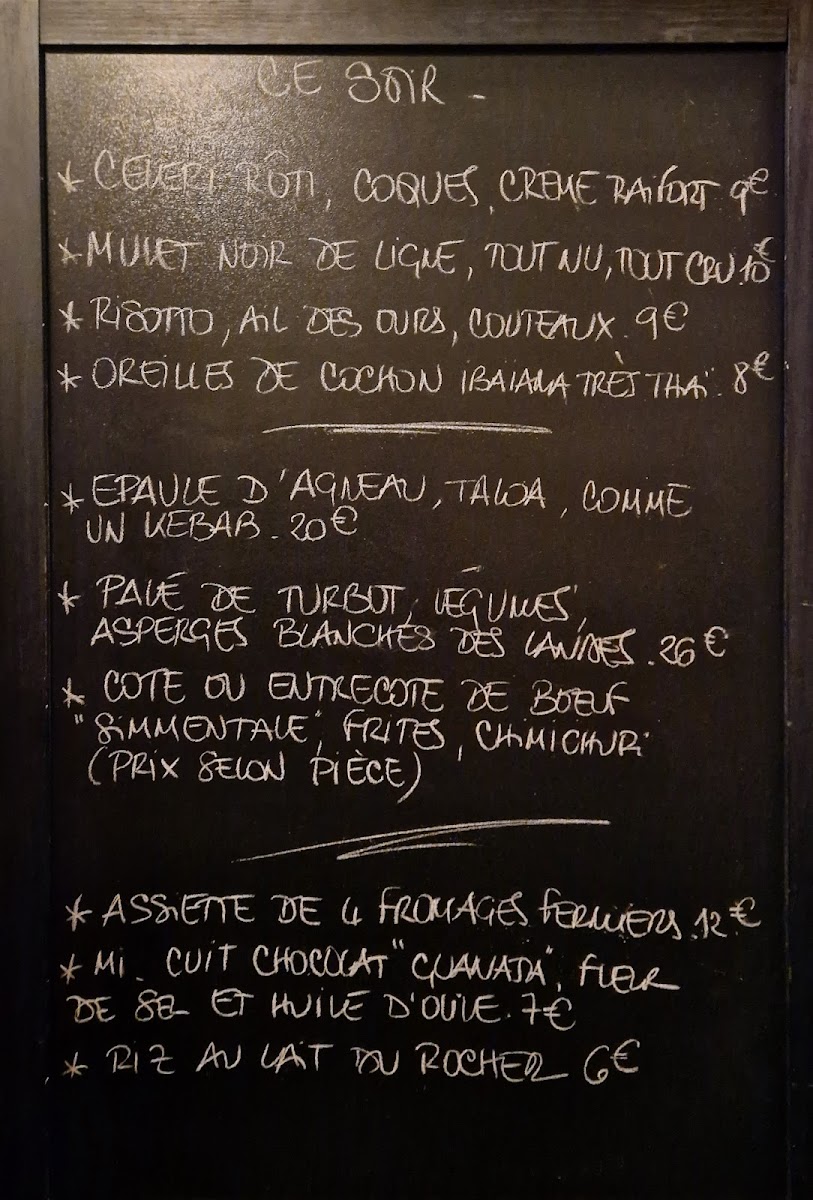 CE SOIR -
* CELERI RÔTI, COQUES, CREME RAIFORT. 9€
* MULET NOIR DE LIGNE, TOUT NU, TOUT CRU. 10€
* RISOTTO, AIL DES OURS, COUTEAUX. 9€
* OREILLES DE COCHON IBAIAMA TRÈS THAÏ. 8€
* EPAULE D'AGNEAU, TALOA, COMME
UN KEBAB. 20€
* PAVÉ DE TURBOT, LÉGUMES,
ASPERGES BLANCHES DES LANDES. 26€
* COTE OU ENTRECOTE DE BOEUF
"SIMMENTALE", FRITES, CHIMICHURI
(PRIX SELON PIÈCE)
* ASSIETTE DE 4 FROMAGES FERMIERS. 12€
* MI-CUIT CHOCOLAT "GUANAJA", FLEUR
DE SEL ET HUILE D'OLIVE. 7€
* RIZ AU LAIT DU ROCHER 6€